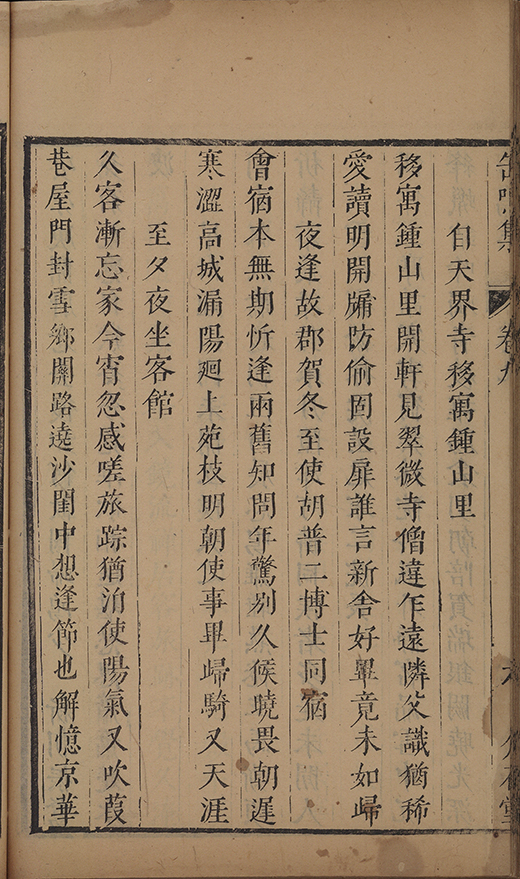 缶鳴集 卷九 六
自天界寺移寓鍾山里
移寓鍾山里開軒見翠微寺僧違乍遠隣父識猶稀
愛讀明開牖防偷固設扉誰言新舍好畢竟未如歸
夜逢故郡賀冬至使胡普二博士同宿
會宿本無期忻逢兩舊知問年驚別久候曉畏朝遲
寒澀高城漏陽廻上苑枝明朝使事畢歸騎又天涯
至夕夜坐客館
久客漸忘家今宵忽感嗟旅踪猶治使陽氣又吹葭
巷屋門封雪鄉關路遶沙閨中想逢節也解憶京華